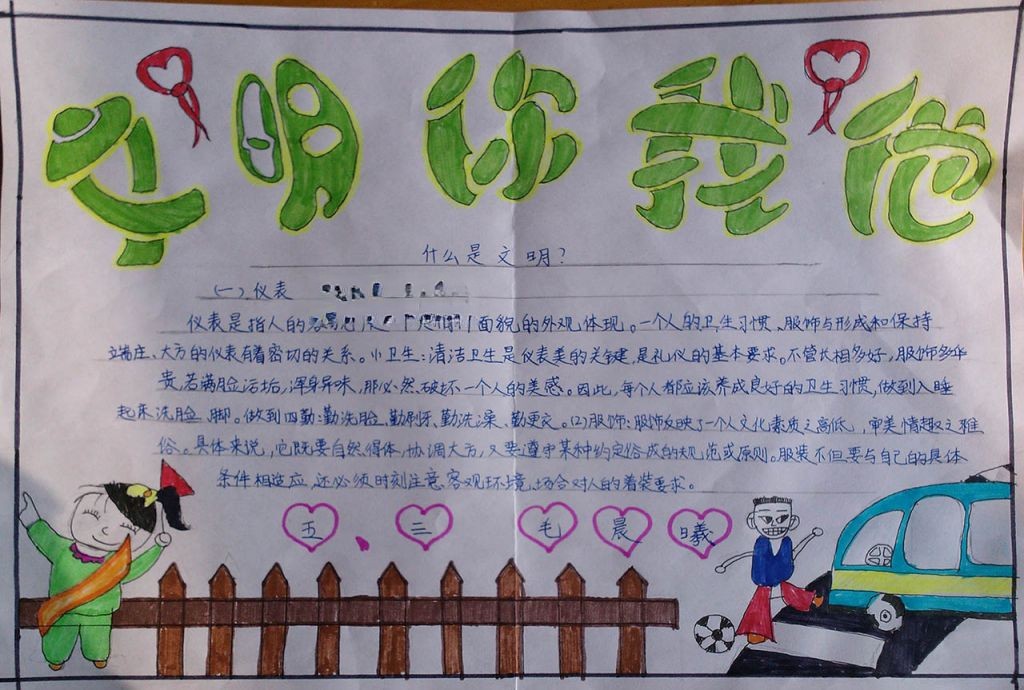 文明你我他
什么是文明?
(一)、仪表
仪表是指人的 面貌的外观体现。一个人的卫生习惯、服饰与形成和保持
端庄、大方的仪表有着密切的关系。⑴卫生:清洁卫生是仪表美的关键,是礼仪的基本要求。不管长相多好,服饰多华
贵,若满脸污垢,浑身异味,那必然破坏一个人的美感。因此,每个人都应该养成良好的卫生习惯,做到入睡
起床洗脸、脚。做到四勤:勤洗脸、勤刷牙、勤洗澡、勤更衣。(2)服饰:服饰反映了一个人文化素质之高低,审美情趣之雅
俗。具体来说,它既要自然得体,协调大方,又要遵守某种约定俗成的规范或原则。服装不但要与自己的具体
条件相适应,还必须时刻注意客观环境、场合对人的着装要求。
五、三 毛晨曦